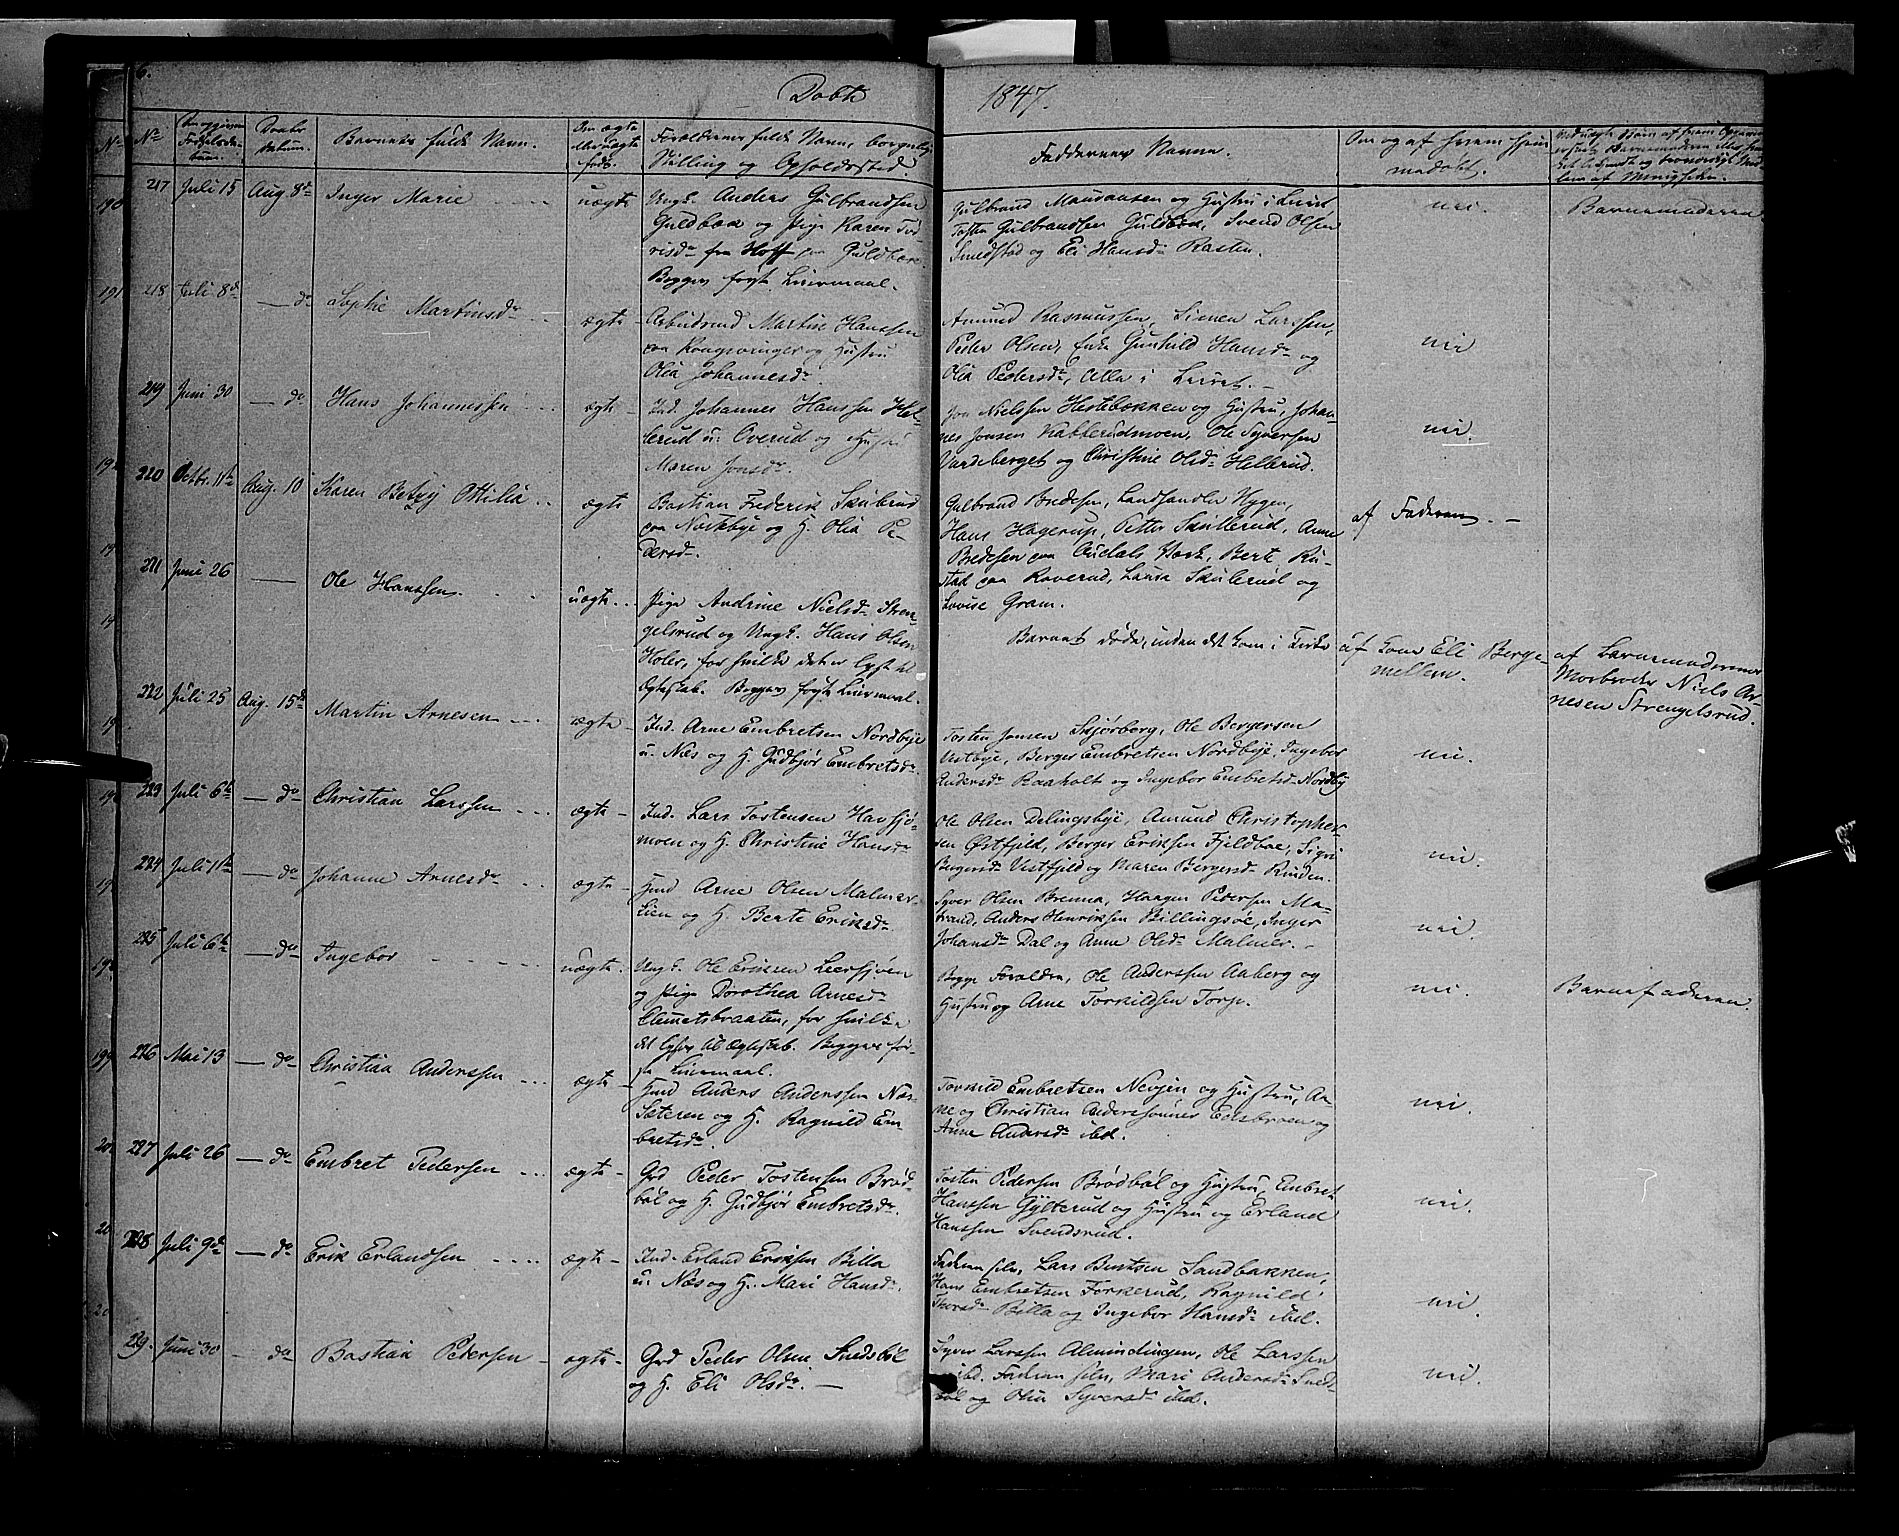 6.
Døbte
1847.
No
Barnets fulde Navn.
Forældrenes fulde Navn, borgerlig
Stilling og Opholdssted.
Faddernes Navne.
Om og af hvem hjem
medøbt.
217 Juli 15 Aug 8de Inger Marie uægte Ungk. Anders Gulbrandsen
Guldboa og Pige Karen
fra Hoff paa Guldboa.
Begges første Leiermaal.
Gulbrand og Hustru i Leiret
Tosten Gulbrandsen Guldboa, Svend Olsen
Smedstad og Eli Hansdr Rasten.
nei.
Barnemoderen
218 Juli 8de do Sophie Martinsdr ægte Arbeidsmd Martin Hanssen
paa Kongsvinger og Hustru
Olia Johannesdr.
Amund Rasmussen, Simen Larssen,
Peder Olsen, Enke Gunhild Hansdr og
Olia Pedersdr, Alle i Leiret.
nei
219 Juni 30 do Hans Johannessen ægte Ind. Johannes Hanssen Hel-
lerud u: Overud og Hustru
Maren Jonsdr.
Jon Nielssen Hestebækken og Hustru, Johan-
nes Jonsen Kabberudmoen, Ole Syversen
Vardeberget og Christine Olsdr Helbrud.
nei.
220 Octbr. 11te Aug. 10 Karen Betzy Ottilia ægte Bastian Frederik Skulerud
paa Norkbye og H. Olia Pe-
dersd.
Gulbrand Bredesen, Landhandler Hygen,
Hans Hagerup, Petter Skullerud, Anne
Bredesen paa Oudals Værk, Bert Ru-
stad paa Roverud, Laura Skulerud og
Lovise Gram.
af Faderen.
221 Juni 26 Ole Hanssen uægte Pige Andrine Nielsdr Stren-
gelsrud og Ungk. Hans Olsen
Holer, for hvilke det er lyst til
Ægteskab. Begges første Leiermaal.
Barnet døde, inden det kom i Kirke
af Kone Eli Berge-
mellem.
af Barnemoderens
Morbroder Niels Ar-
nesen Strengelsrud.
222 Juli 25 Aug. 15de Martin Arnesen ægte Ind. Arne Embretsen Nordbye
u. Næs og H. Gudbjør Embretsdr.
Tosten Jonsen Skjørberg, Ole Bergersen
Vestbye, Berger Embretsen Nordbye, Ingebor
Andersdr Raaholt og Ingebor Embretsd. Nordby
nei.
223 Juli 6te do Christian Larssen ægte Ind. Lars Tostensen Havsjø-
moen og H. Christine Hansdr
Ole Olsen Delingsbye, Amund Christopher-
sen Østfjeld, Berger Eriksen Fjeldboe, Sigri
Bergersdr Vestfjeld og Maren Bergersd. Rinden.
nei.
224 Juli 11te do Johanne Arnesdr ægte Hmd Arne Olsen Malmer-
lien og H. Berte Eriksdr
Syver Olsen Brenna, Haagen Pedersen Ma-
brand, Anders Henriksen Billingsøe, Inger
Johansdr Dal og Anne Olsdr Malmer.
nei.
225 Juli 6te do Ingebor uægte. Ungk. Ole Eriksen Leersjøen
og Pige Dorothea Arnesdr
Clemetsbraaten, for hvilke
det lyses til Ægteskab. Begges før-
ste Leiermaal.
Begge Forældre, Ole Anderssen Aaberg og
Hustru og Arne Torkildsen Torp.
nei.
Barnefaderen.
226 Mai 13 do Christian Anderssen ægte Hmd Anders Anderssen Næs-
Sæteren og H. Ragnild Em-
bretsdr.
Torkild Embretsen Nevjen og Hustru, Ar-
ne og Christian Anderssønner Edsbroen og
Anne Andersdr ibd.
nei.
227 Juli 26 do Embret Pedersen ægte Grd Peder Tostensen Brød-
bøl og H. Gudbjør Embretsdr.
Tosten Pedersen Brødbøl og Hustru, Embret
Hanssen Gylterud og Hustru og Erland
Hanssen Svendsrud.
nei.
228 Juli 9de do Erik Erlandsen ægte Ind. Erland Eriksen Billa
u. Næs og H. Mari Hansdr.
Faderen selv, Lars Berntsen Sandbakken,
Hans Embretsen Forkerud, Ragnild
Thorsdr Billa og Ingebor Hansdr ibd.
nei.
229. Juni 30 do Bastian Pedersen ægte Grd Peder Olsen Snedsbøl
og H. Eli Olsdr.
Syver Larssen Almindingen, Ole Larssen
ibd. Faderen selv, Mari Andersdr Sneds-
bøl og Olia Syversdr ibd.
nei.